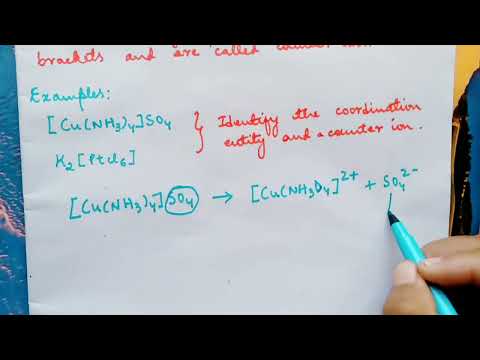 brackets and are called counter
Examples:
[Cu(NH3)4]SO4 } Identify the coordination
entity and a counter ion.
K2[PtCl6]
[Cu(NH3)4]SO4 → [Cu(NH3)4]2+ + SO4 2-